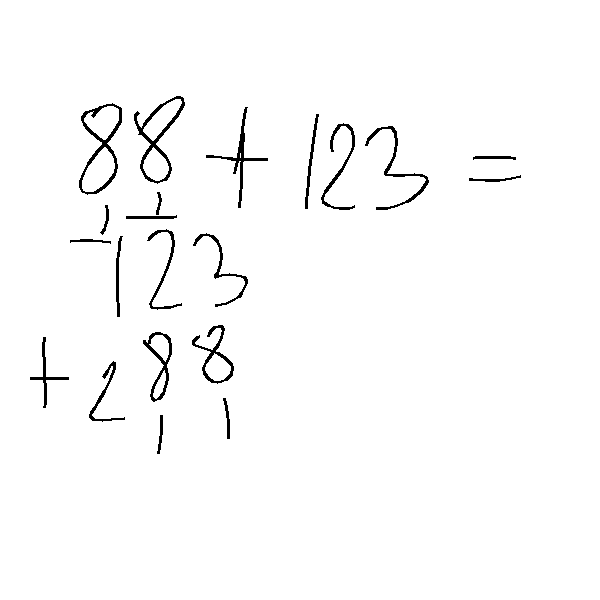 88 + 123 =
1 1
123
+ 288
1 1